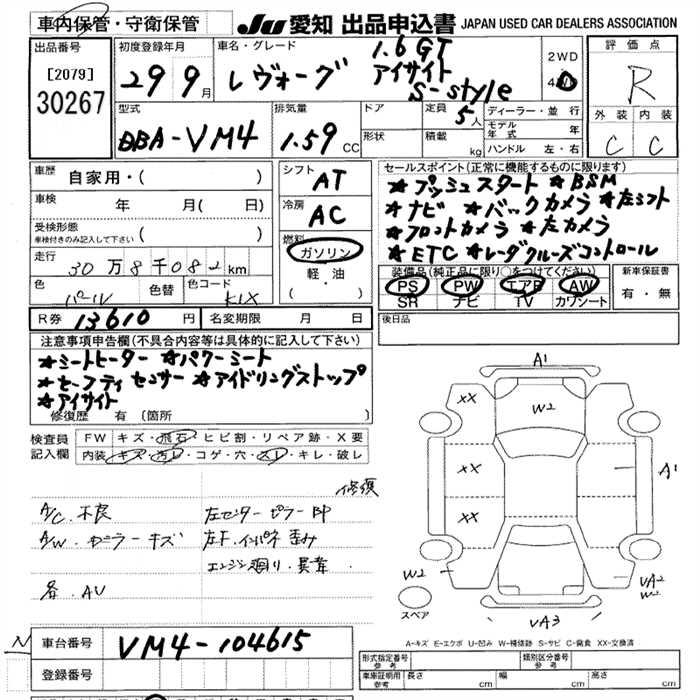 車内保管・守衛保管 JU 愛知 出品申込書 JAPAN USED CAR DEALERS ASSOCIATION
出品番号
[2079]
30267
初度登録年月
29 9月
車名・グレード
レヴォーグ
1.6GT
アイサイト
S-style
2WD
4WD
評価点
R
外装 内装
C C
型式
DBA-VM4
排気量
1.59 CC
ドア
形状
定員 5人
積載 kg
ディーラー・並行
モデル年式 年
ハンドル 左・右
車歴 自家用・( )
車検 年 月( 日)
受検形態
車検付きのみ記入して下さい ( )
走行 30万8千082km
色 パール
色替
色コード K1X
R券 13610 円
名変期限 月 日
シフト AT
冷房 AC
燃料
ガソリン
軽・油
( ・ )
セールスポイント(正常に機能するものに限ります)
★プッシュスタート ★BSM
★ナビ ★バックカメラ ★左シフト
★フロントカメラ ★左カメラ
★ETC ★レーダクルーズコントロール
装備品(純正品に限り○をつけてください)
PS PW エアB AW
SR ナビ TV カワシート
新車保証書
有・無
後日品
注意事項申告欄(不具合内容等は具体的に記入して下さい)
★シートヒーター ★パワーシート
★セーフティセンサー ★アイドリングストップ
★アイサイト
修復歴 有 (箇所
検査員記入欄
FW キズ・飛石・ヒビ割・リペア跡・X要
内装 キズ・汚レ・コゲ・穴・スレ・キレ・破レ
修復
A/C.不良 左センターピラーBP
A/W.カラーキズ 左F.インパネ歪み
エンジン廻り.異音
各.AU
A1
W2
XX
XX
XX
A1
W2
UA2
W2
UA3
スペア
A-キズ E-エクボ U-凹み W-補修跡 S-サビ C-腐食 XX-交換済
N
車台番号 VM4-104615
登録番号
形式指定番号 参考
類別区分番号 参考
車庫証明用 参考
長さ cm
幅 cm
高さ cm